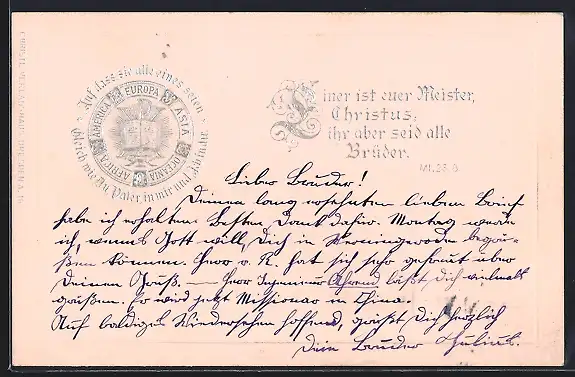 Auf dass sie alle eines seien
Gleich wie Du, Vater, in mir und Ich in dir
AMERICA EUROPA ASIA OCEANIA AFRICA
Einer ist euer Meister,
Christus;
ihr aber seid alle
Brüder.
Mt. 23. 8.
Lieber Bruder!
Deinen lang ersehnten lieben Brief
habe ich erhalten. Besten Dank dafür. Montag werde
ich, wenns Gott will, Dich in Wernigerode begrü-
ßen können. Herr v. R. hat sich sehr gefreut über
Deinen Gruß. — Herr Ingenieur Ahrend läßt Dich vielmals
grüßen. Er wird jetzt Missionar in China.
Auf baldiges Wiedersehen hoffend, grüßt Dich herzlich
Dein Bruder Julius.